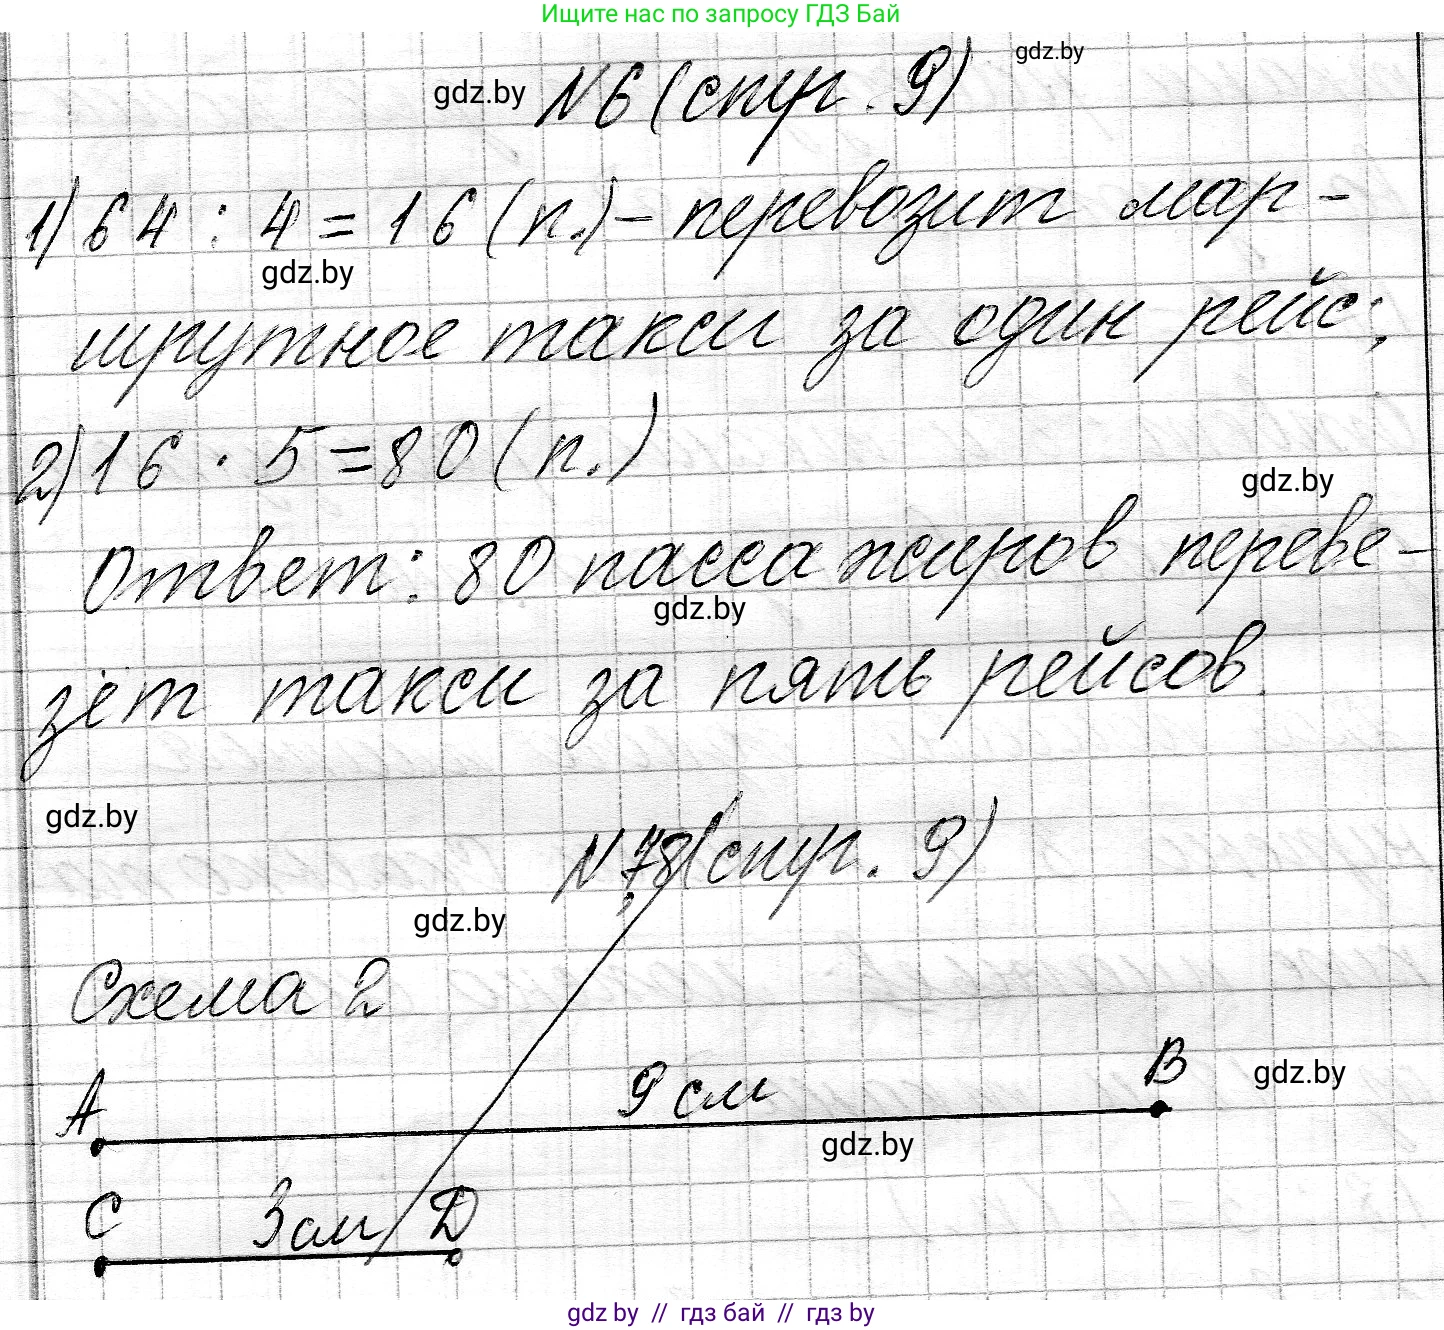 Ищите нас по запросу ГДЗ Бай
gdz.by
gdz.by
№6 (стр. 9)
1) 64 : 4 = 16 (п.) - перевозит мар-
gdz.by
шрутное такси за один рейс;
2) 16 · 5 = 80 (п.)
gdz.by
Ответ: 80 пассажиров переве-
gdz.by
зёт такси за пять рейсов.
gdz.by
№ 78 (стр. 9)
gdz.by
Схема 2
A 9 см B
gdz.by
gdz.by
C 3 см D
gdz.by // гдз бай // гдз by